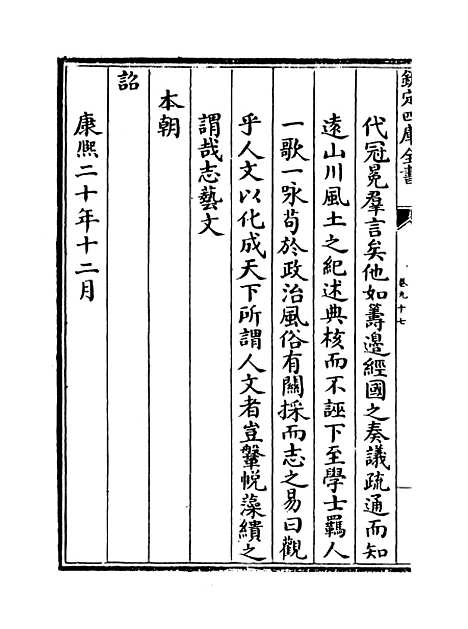 欽定四庫全書
卷九十七
代冠冕羣言矣他如籌邊經國之奏議疏通而知
遠山川風土之紀述典核而不誣下至學士羈人
一歌一咏茍於政治風俗有關採而志之易曰觀
乎人文以化成天下所謂人文者豈鞶帨藻繢之
謂哉志藝文
本朝
詔
康熙二十年十二月